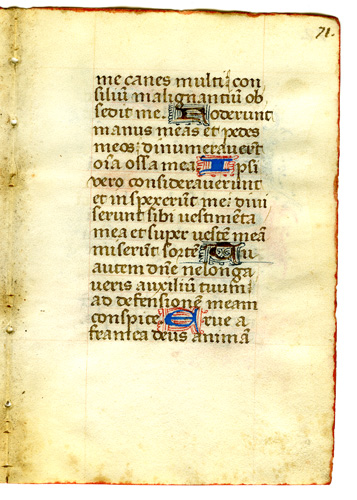 71.
me canes multi: con
siliū malignantiū ob
sedit me. Foderunt
manus meas et pedes
meos: dinumeraverūt
oīa ossa mea. Ipsi
vero consideraverunt
et inspexerūt me: divi
serunt sibi vestimēta
mea et super vestē meā
miserūt sortē. Tu
autem dn̄e ne longa
veris auxiliū tuum:
ad defensionē meam
conspice. Erue a
framea deus animā